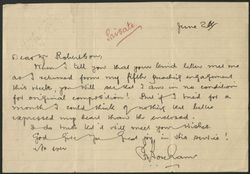 Private
June 24
Dear Mr Robertson,
When I tell you that your kind letter met me
as I returned from my fifth engagement
this week, you will see that I am in no condition
for original composition! But if I tried for a
month I could think of nothing that better
expressed my heart than the enclosed.
I do trust it will meet your wishes.
God give you great joy in this service!
As ever